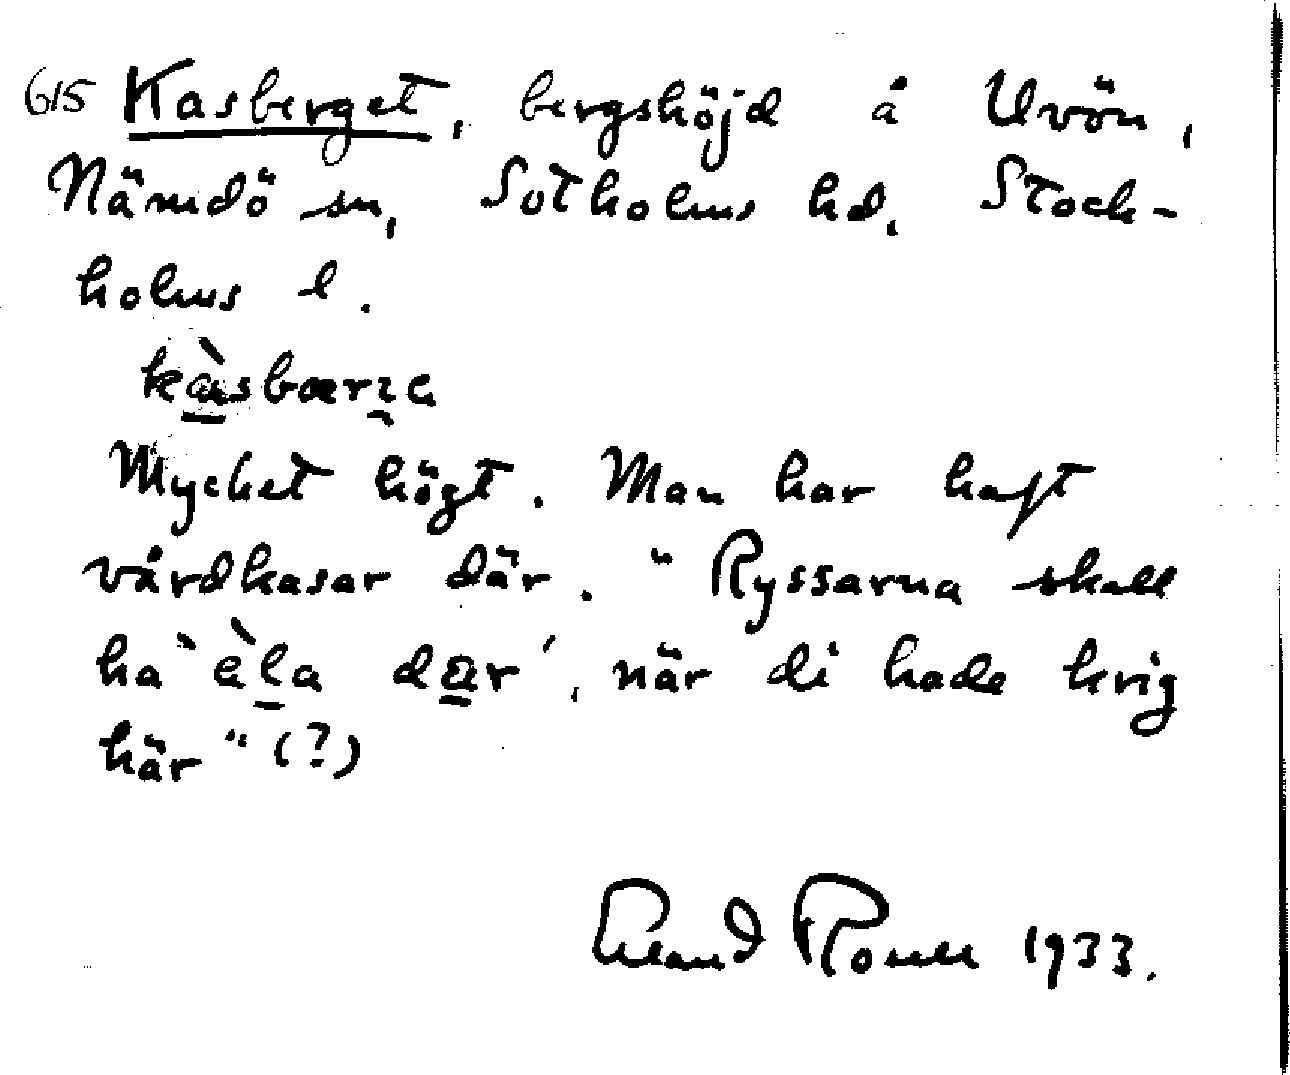 615 Kasberget, bergshöjd å Uvön,
Nämdö sn, Sotholms hd, Stock-
holms l.
kàsbærɪe
Mycket högt. Man har haft
vårdkasar där. "Ryssarna skall
ha` èla dær´, när di hade krig
här" (?)
1933.